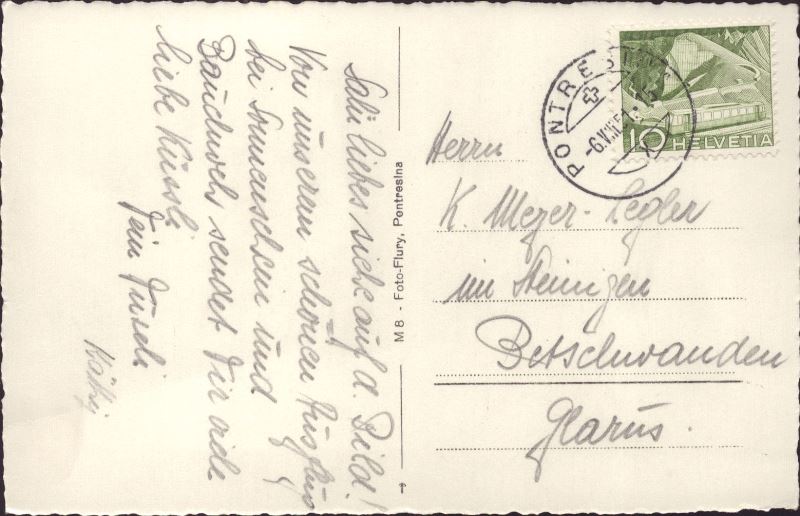 Salü liebes siehe auf d. Bild!
Von unserem schönen Ausflug
bei Sonnenschein und
Bauchweh sendet Dir viele
liebe Küssli
Dein
Käthy
M 8 - Foto-Flury, Pontresina
PONTRESINA
-6.VIII.5
10 HELVETIA
Herrn
K. Meyer-Legler
im Steinigen
Betschwanden
Glarus.